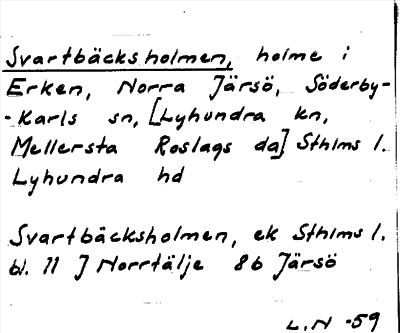 Svartbäcksholmen, holme i
Erken, Norra Järsö, Söderby-
-Karls sn, [Lyhundra kn,
Mellersta Roslags da] Sthlms l.
Lyhundra hd
Svartbäcksholmen, ek Sthlms l.
bl. 11 J Norrtälje 86 Järsö
L.N -59